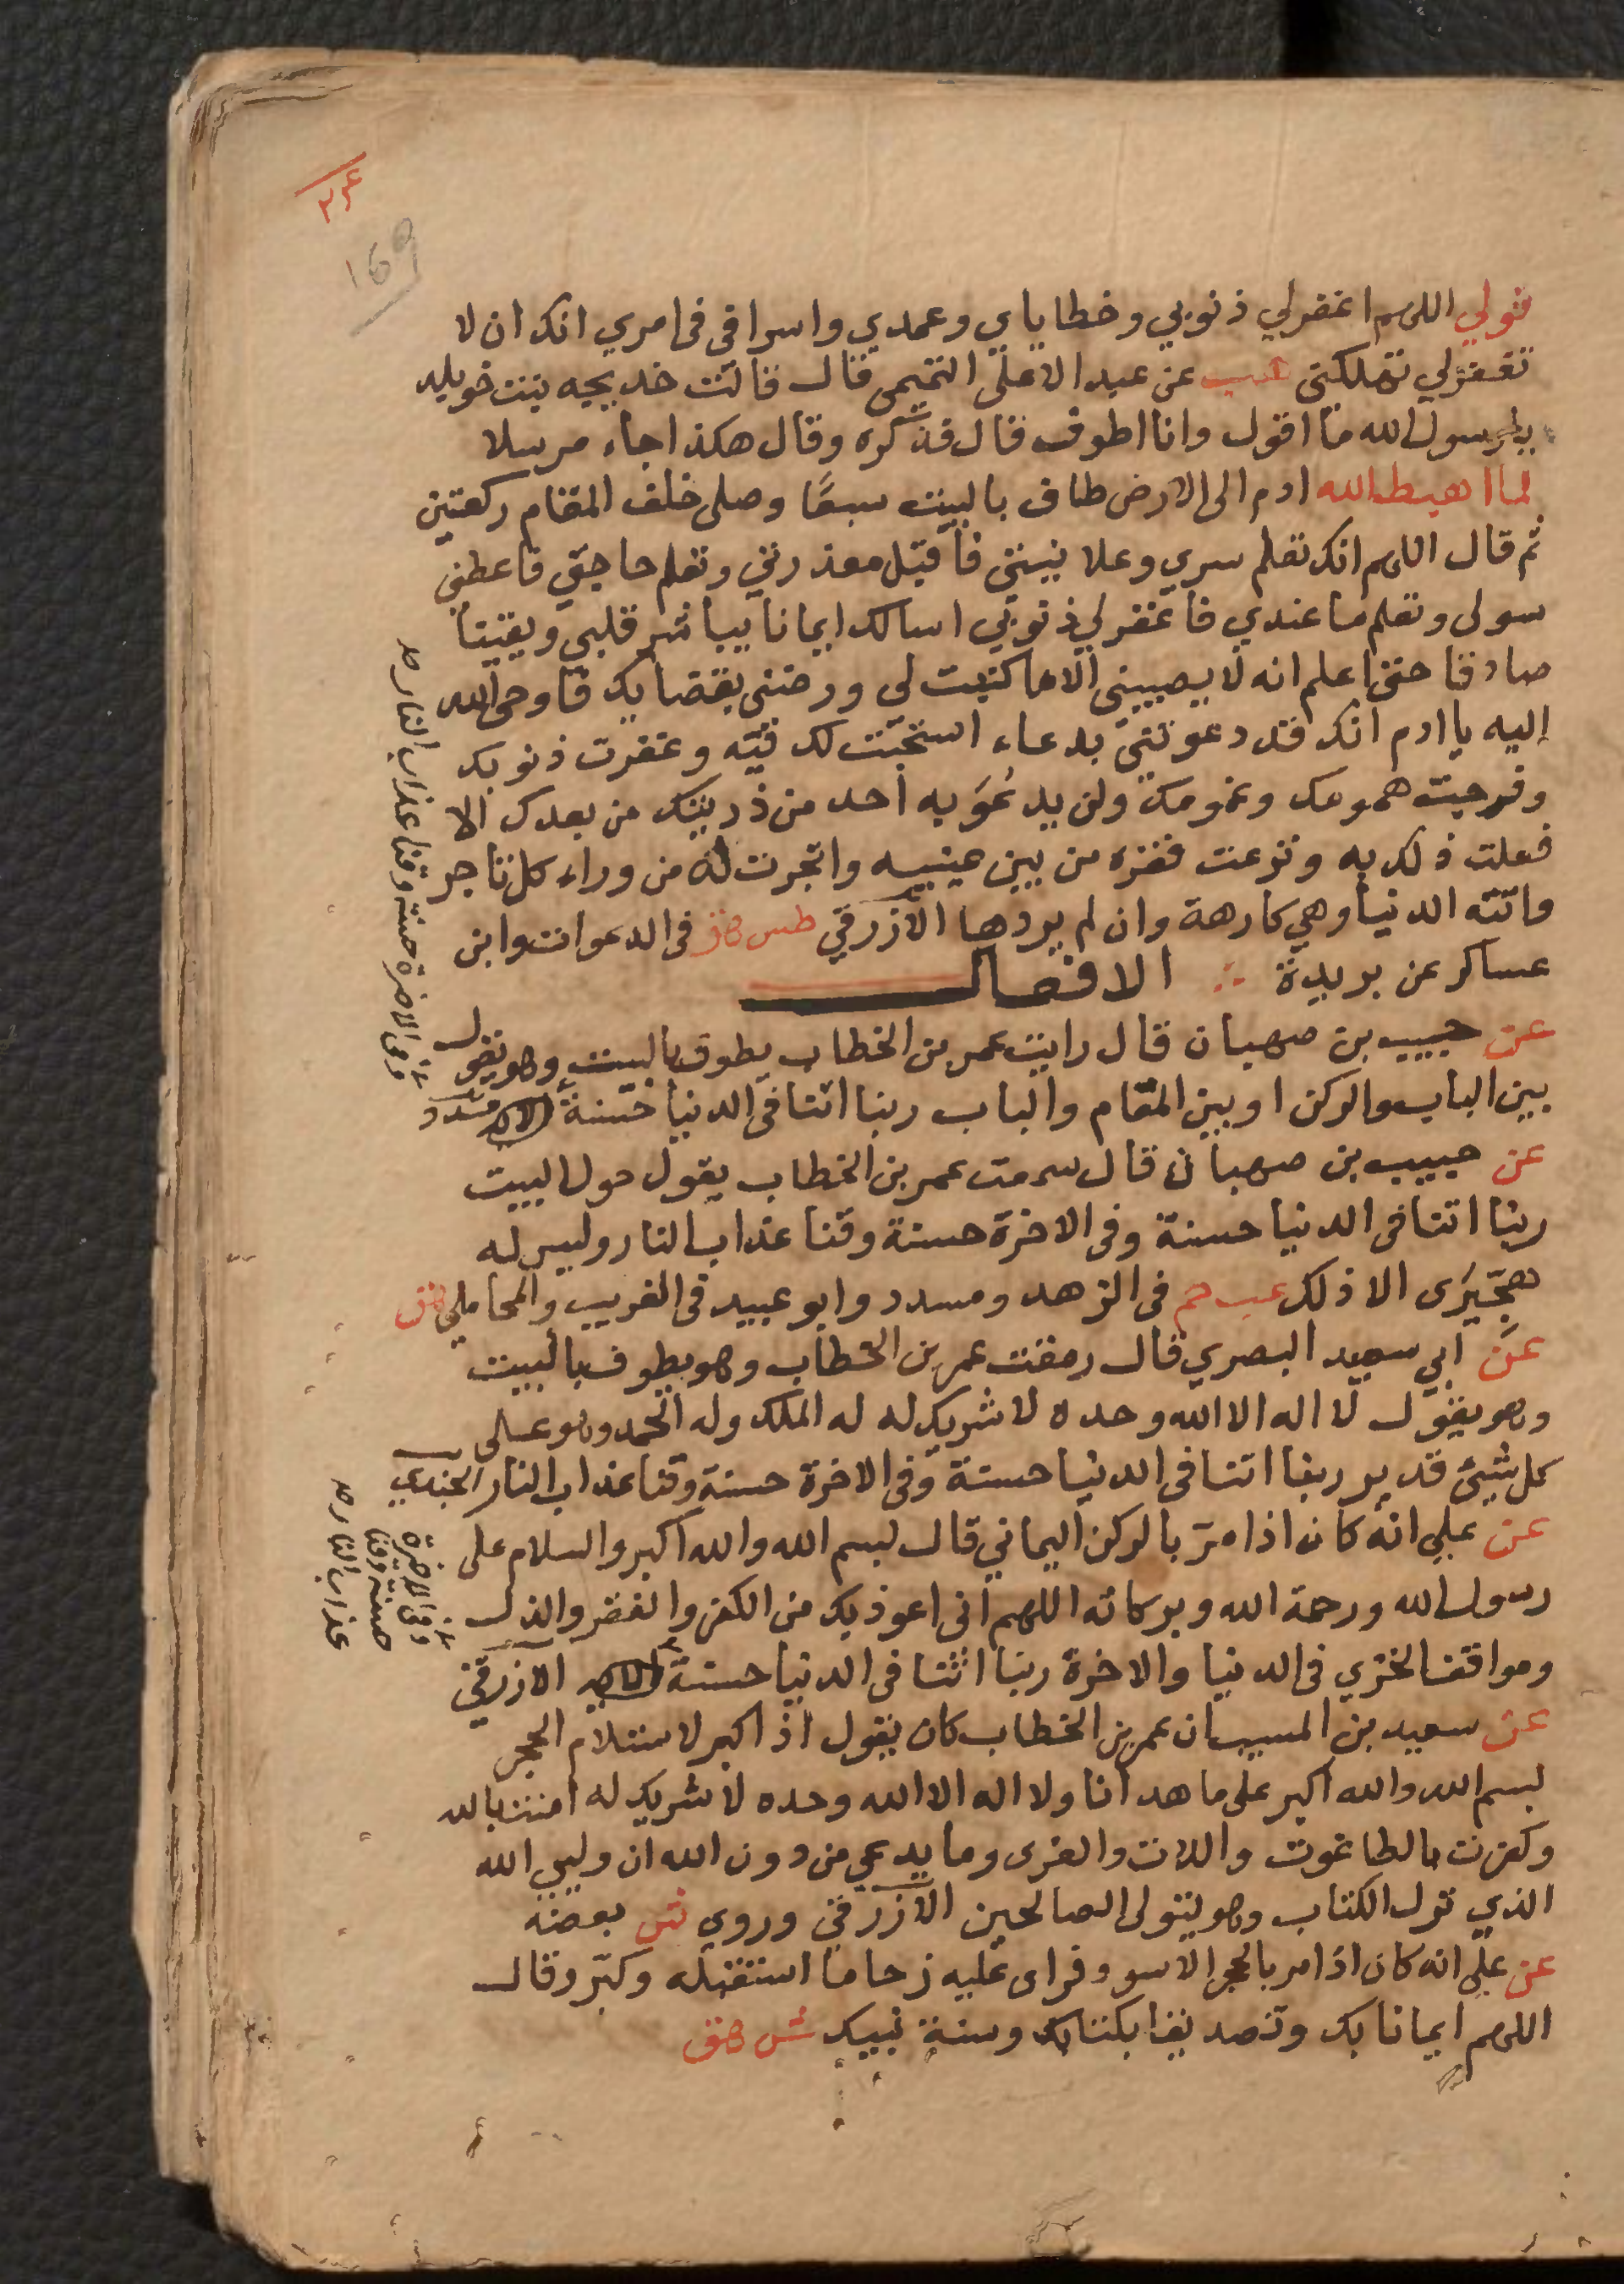 169
قولي اللهم اغفر لي ذنوبي وخطاياي وعمدي واسرافي في امري انك ان لا
تغفر لي تهلكني هب عن عبد الاعلى التميمي قال قالت خديجه بنت خويلد
يا رسول الله ما اقول وانا اطوف قال فذكره وقال هكذا جاء مرسلا
لما اهبط الله ادم الى الارض طاف بالبيت سبعًا وصلى خلف المقام ركعتين
ثم قال اللهم انك تعلم سري وعلانيتي فاقبل معذرتي وتعلم حاجتي فاعطني
سولى وتعلم ما عندي فاغفر لي ذنوبي اسالك ايمانا يباشر قلبي ويقينا
صادقا حتى اعلم انه لا يصيبني الا ما كتبت لي ورضني بقضايك فاوحى الله
إليه يا ادم انك قد دعوتني بدعاء استجبت لك فيه وغفرت ذنوبك
وفرجت همومك وغمومك ولن يدعُوَ به أحد من ذريتك من بعدك الا
فعلت ذلك به ونزعت فقره من بين عينيه واتجرت له من وراء كل تاجر
واتته الدنيا وهي كارهة وان لم يردها الازرقي طس هق في الدعوات وابن
عساكر عن بريدة الافعال
عن حبيب بن صهبان قال رايت عمر بن الخطاب يطوف بالبيت وهو يقول
بين الباب والركن او بين المقام والباب ربنا اتنا في الدنيا حسنة مسدد
وفى الاخرة حسنة وقنا عذاب النار صح
عن حبيب بن صهبان قال سمعت عمر بن الخطاب يقول حول البيت
ربنا اتنا في الدنيا حسنة وفى الاخرة حسنة وقنا عذاب النار وليس له
هجّيرَى الا ذلك عب حم في الزهد ومسدد وابو عبيد في الغريب والمحاملي هق
عن ابي سعيد البصري قال رمقت عمر بن الخطاب وهو يطوف بالبيت
وهو يقول لا اله الا الله وحده لا شريك له له الملك وله الحمد وهو على
كل شيئ قدير ربنا اتنا في الدنيا حسنة وفى الاخرة حسنة وقنا عذاب النار الجندي
عن علي انه كان اذا مرّ بالركن اليماني قال بسم الله والله اكبر والسلام على
رسول الله ورحمة الله وبركاته اللهم اني اعوذ بك من الكفر والفقر والذل
ومواقف الخزي في الدنيا والاخرة ربنا اتنا في الدنيا حسنة الازرقي
وفى الاخرة
حسنة وقنا
عذاب النار صح
عن سعيد بن المسيب ان عمر بن الخطاب كان يقول اذ اكبر لاستلام الحجر
بسم الله والله اكبر على ما هدانا ولا اله الا الله وحده لا شريك له امنت بالله
وكفرت بالطاغوت واللات والعزى وما يدعى من دون الله ان وليي الله
الذي نزل الكتاب وهو يتولى الصالحين الازرقي وروي ش بعضه
عن علي انه كان اذا مر بالحجر الاسود فراى عليه زحاما استقبله وكبّر وقال
اللهم ايمانا بك وتصديقا بكتابك وسنة نبيك ش هق